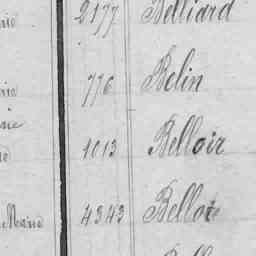 2177 Belliard
776 Belin
1013 Belloir
Marie 4343 Bellote